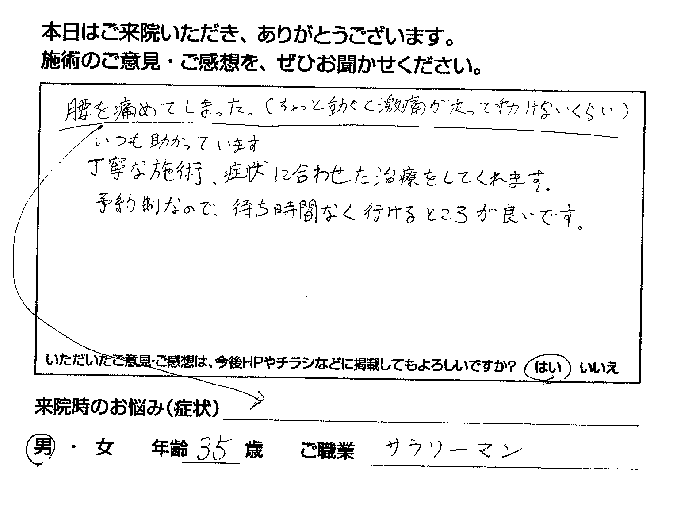 本日はご来院いただき、ありがとうございます。
施術のご意見・ご感想を、ぜひお聞かせください。
腰を痛めてしまった。(ちょっと動くと激痛が走って動けないくらい)
いつも助かっています
丁寧な施術、症状に合わせた治療をしてくれます。
予約制なので、待ち時間なく行けるところが良いです。
いただいたご意見・ご感想は、今後HPやチラシなどに掲載してもよろしいですか? はい いいえ
来院時のお悩み(症状)
男 ・ 女 年齢 35 歳 ご職業 サラリーマン